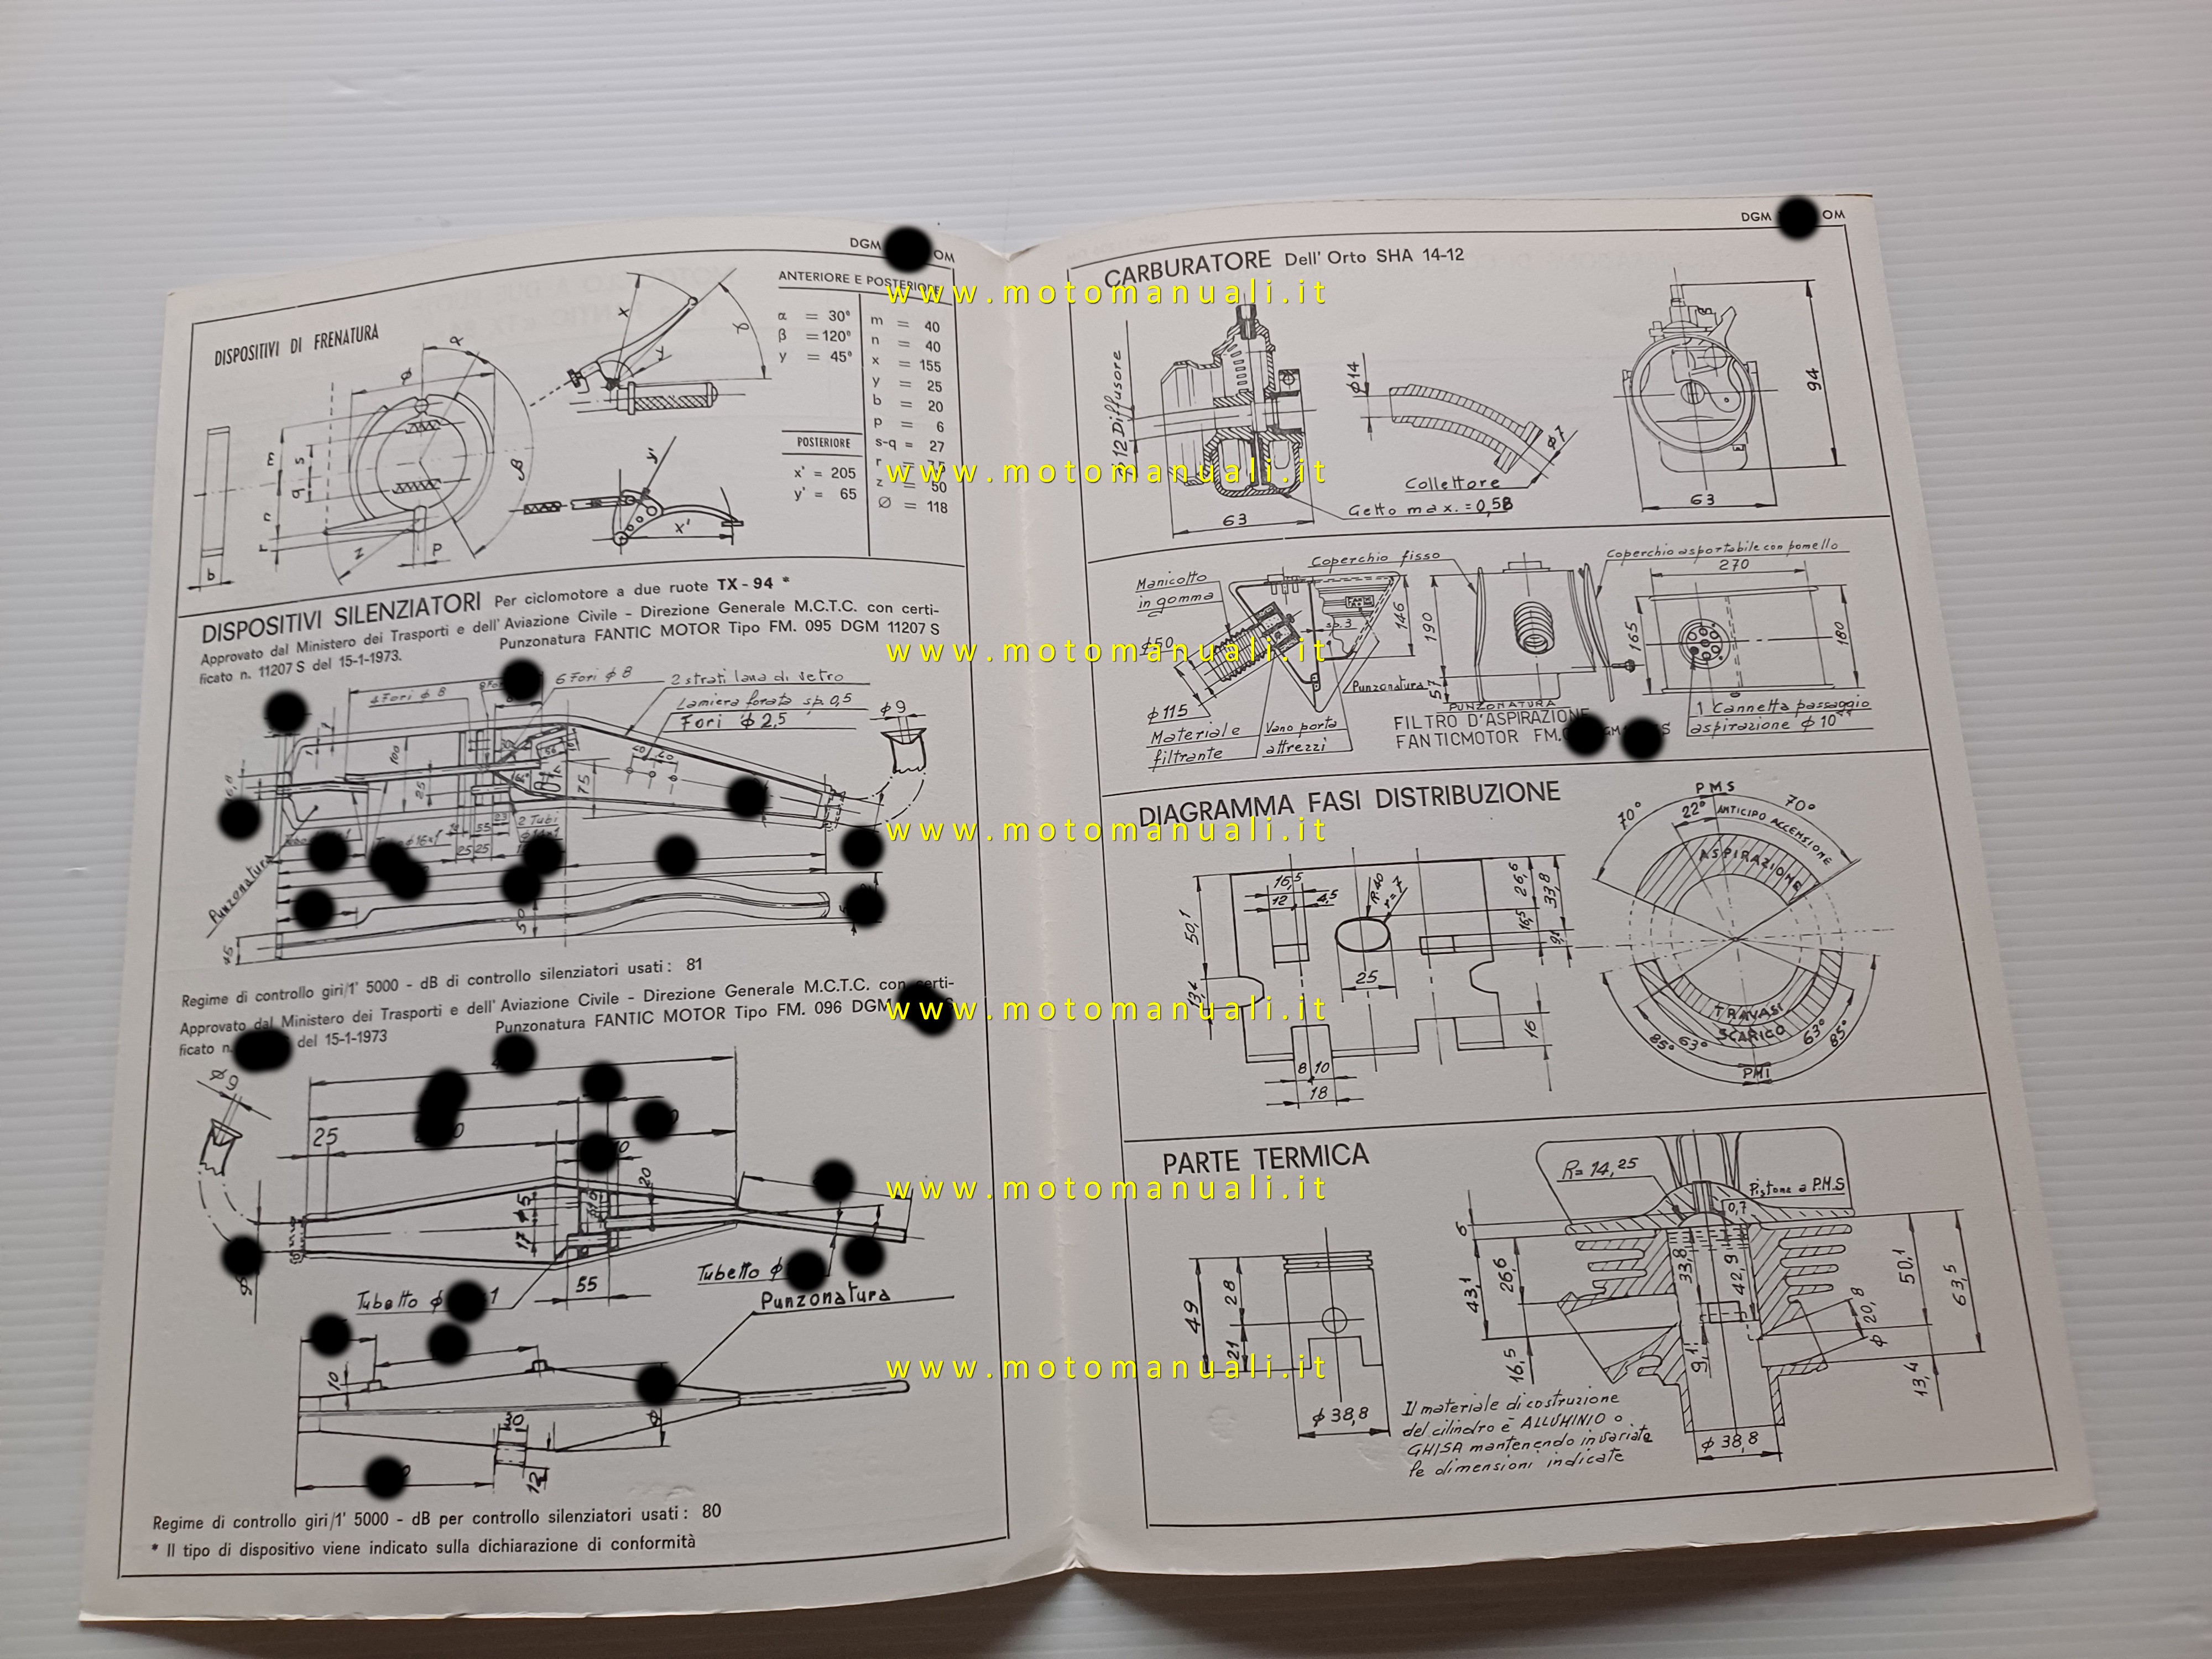 DGM OM
DISPOSITIVI DI FRENATURA
ANTERIORE E POSTERIORE
α = 30°
β = 120°
y = 45°
m = 40
n = 40
x = 155
y = 25
b = 20
p = 6
s-q = 27
r =
z = 50
Ø = 118
POSTERIORE
x' = 205
y' = 65
DISPOSITIVI SILENZIATORI Per ciclomotore a due ruote TX - 94 *
Approvato dal Ministero dei Trasporti e dell' Aviazione Civile - Direzione Generale M.C.T.C. con certi-
ficato n. 11207 S del 15-1-1973. Punzonatura FANTIC MOTOR Tipo FM. 095 DGM 11207 S
4 Fori ϕ 8
6 Fori ϕ 8
2 strati lana di vetro
Lamiera forata sp. 0,5
Fori ϕ 2,5
ϕ 9
100
25
75
2 Tubi
Punzonatura
50
45
Regime di controllo giri/1' 5000 - dB di controllo silenziatori usati : 81
Approvato dal Ministero dei Trasporti e dell' Aviazione Civile - Direzione Generale M.C.T.C. con certi-
ficato n. del 15-1-1973 Punzonatura FANTIC MOTOR Tipo FM. 096 DGM
ϕ 9
25
20
17
55
Tubetto ϕ 1
Tubetto ϕ
Punzonatura
10
30
12
Regime di controllo giri/1' 5000 - dB per controllo silenziatori usati : 80
* Il tipo di dispositivo viene indicato sulla dichiarazione di conformità
DGM OM
CARBURATORE Dell' Orto SHA 14-12
12 Diffusore
ϕ 14
ϕ 7
Collettore
Getto max. = 0,58
63
94
63
Manicotto
in gomma
Coperchio fisso
Coperchio asportabile con pomello
270
ϕ 50
sp. 3
146
190
165
180
57
Punzonatura
ϕ 115
Materiale
filtrante
Vano porta
attrezzi
PUNZONATURA
FILTRO D'ASPIRAZIONE
FANTICMOTOR FM.
1 Cannetta passaggio
aspirazione ϕ 10
DIAGRAMMA FASI DISTRIBUZIONE
P.M.S
70°
22°
70°
ANTICIPO ACCENSIONE
ASPIRAZIONE
TRAVASI
SCARICO
85°
63°
63°
85°
PMI
16,5
12
4,5
R 40
r = 7
26,6
33,8
16,5
9,1
50,1
13,4
25
16
8
10
18
PARTE TERMICA
R = 14,25
Pistone a P.M.S
0,7
6
43,1
26,6
16,5
33,8
42,9
9,1
50,1
63,5
13,4
ϕ 20,8
49
28
21
ϕ 38,8
ϕ 38,8
Il materiale di costruzione
del cilindro è ALLUMINIO o
GHISA mantenendo invariate
le dimensioni indicate
www.motomanuali.it
www.motomanuali.it
www.motomanuali.it
www.motomanuali.it
www.motomanuali.it
www.motomanuali.it
www.motomanuali.it